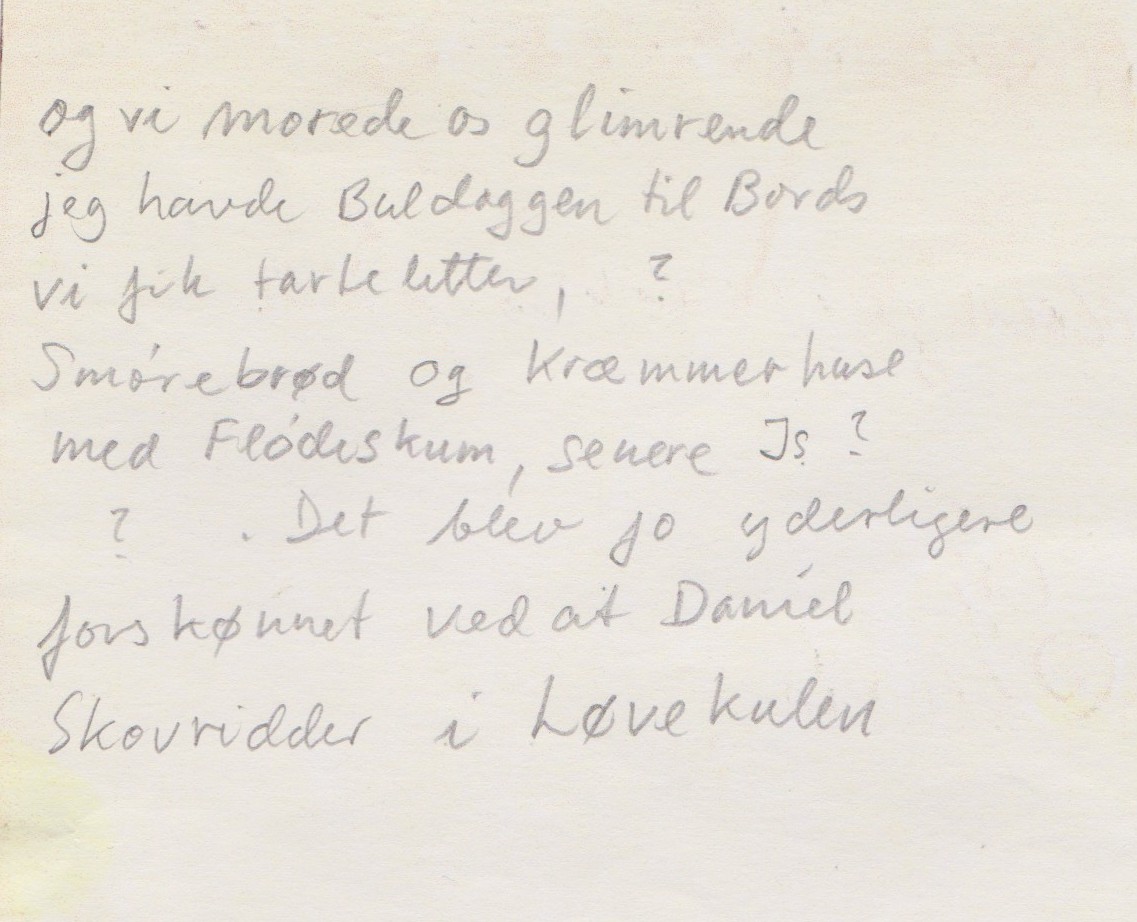 og vi morede os glimrende
jeg havde Buldoggen til Bords
vi fik tarteletter, ?
Smórebrød og Kræmmerhuse
med Flódeskum, senere Is ?
? . Det blev jo yderligere
forskønnet ved at Daniel
Skovridder i Løvekulen